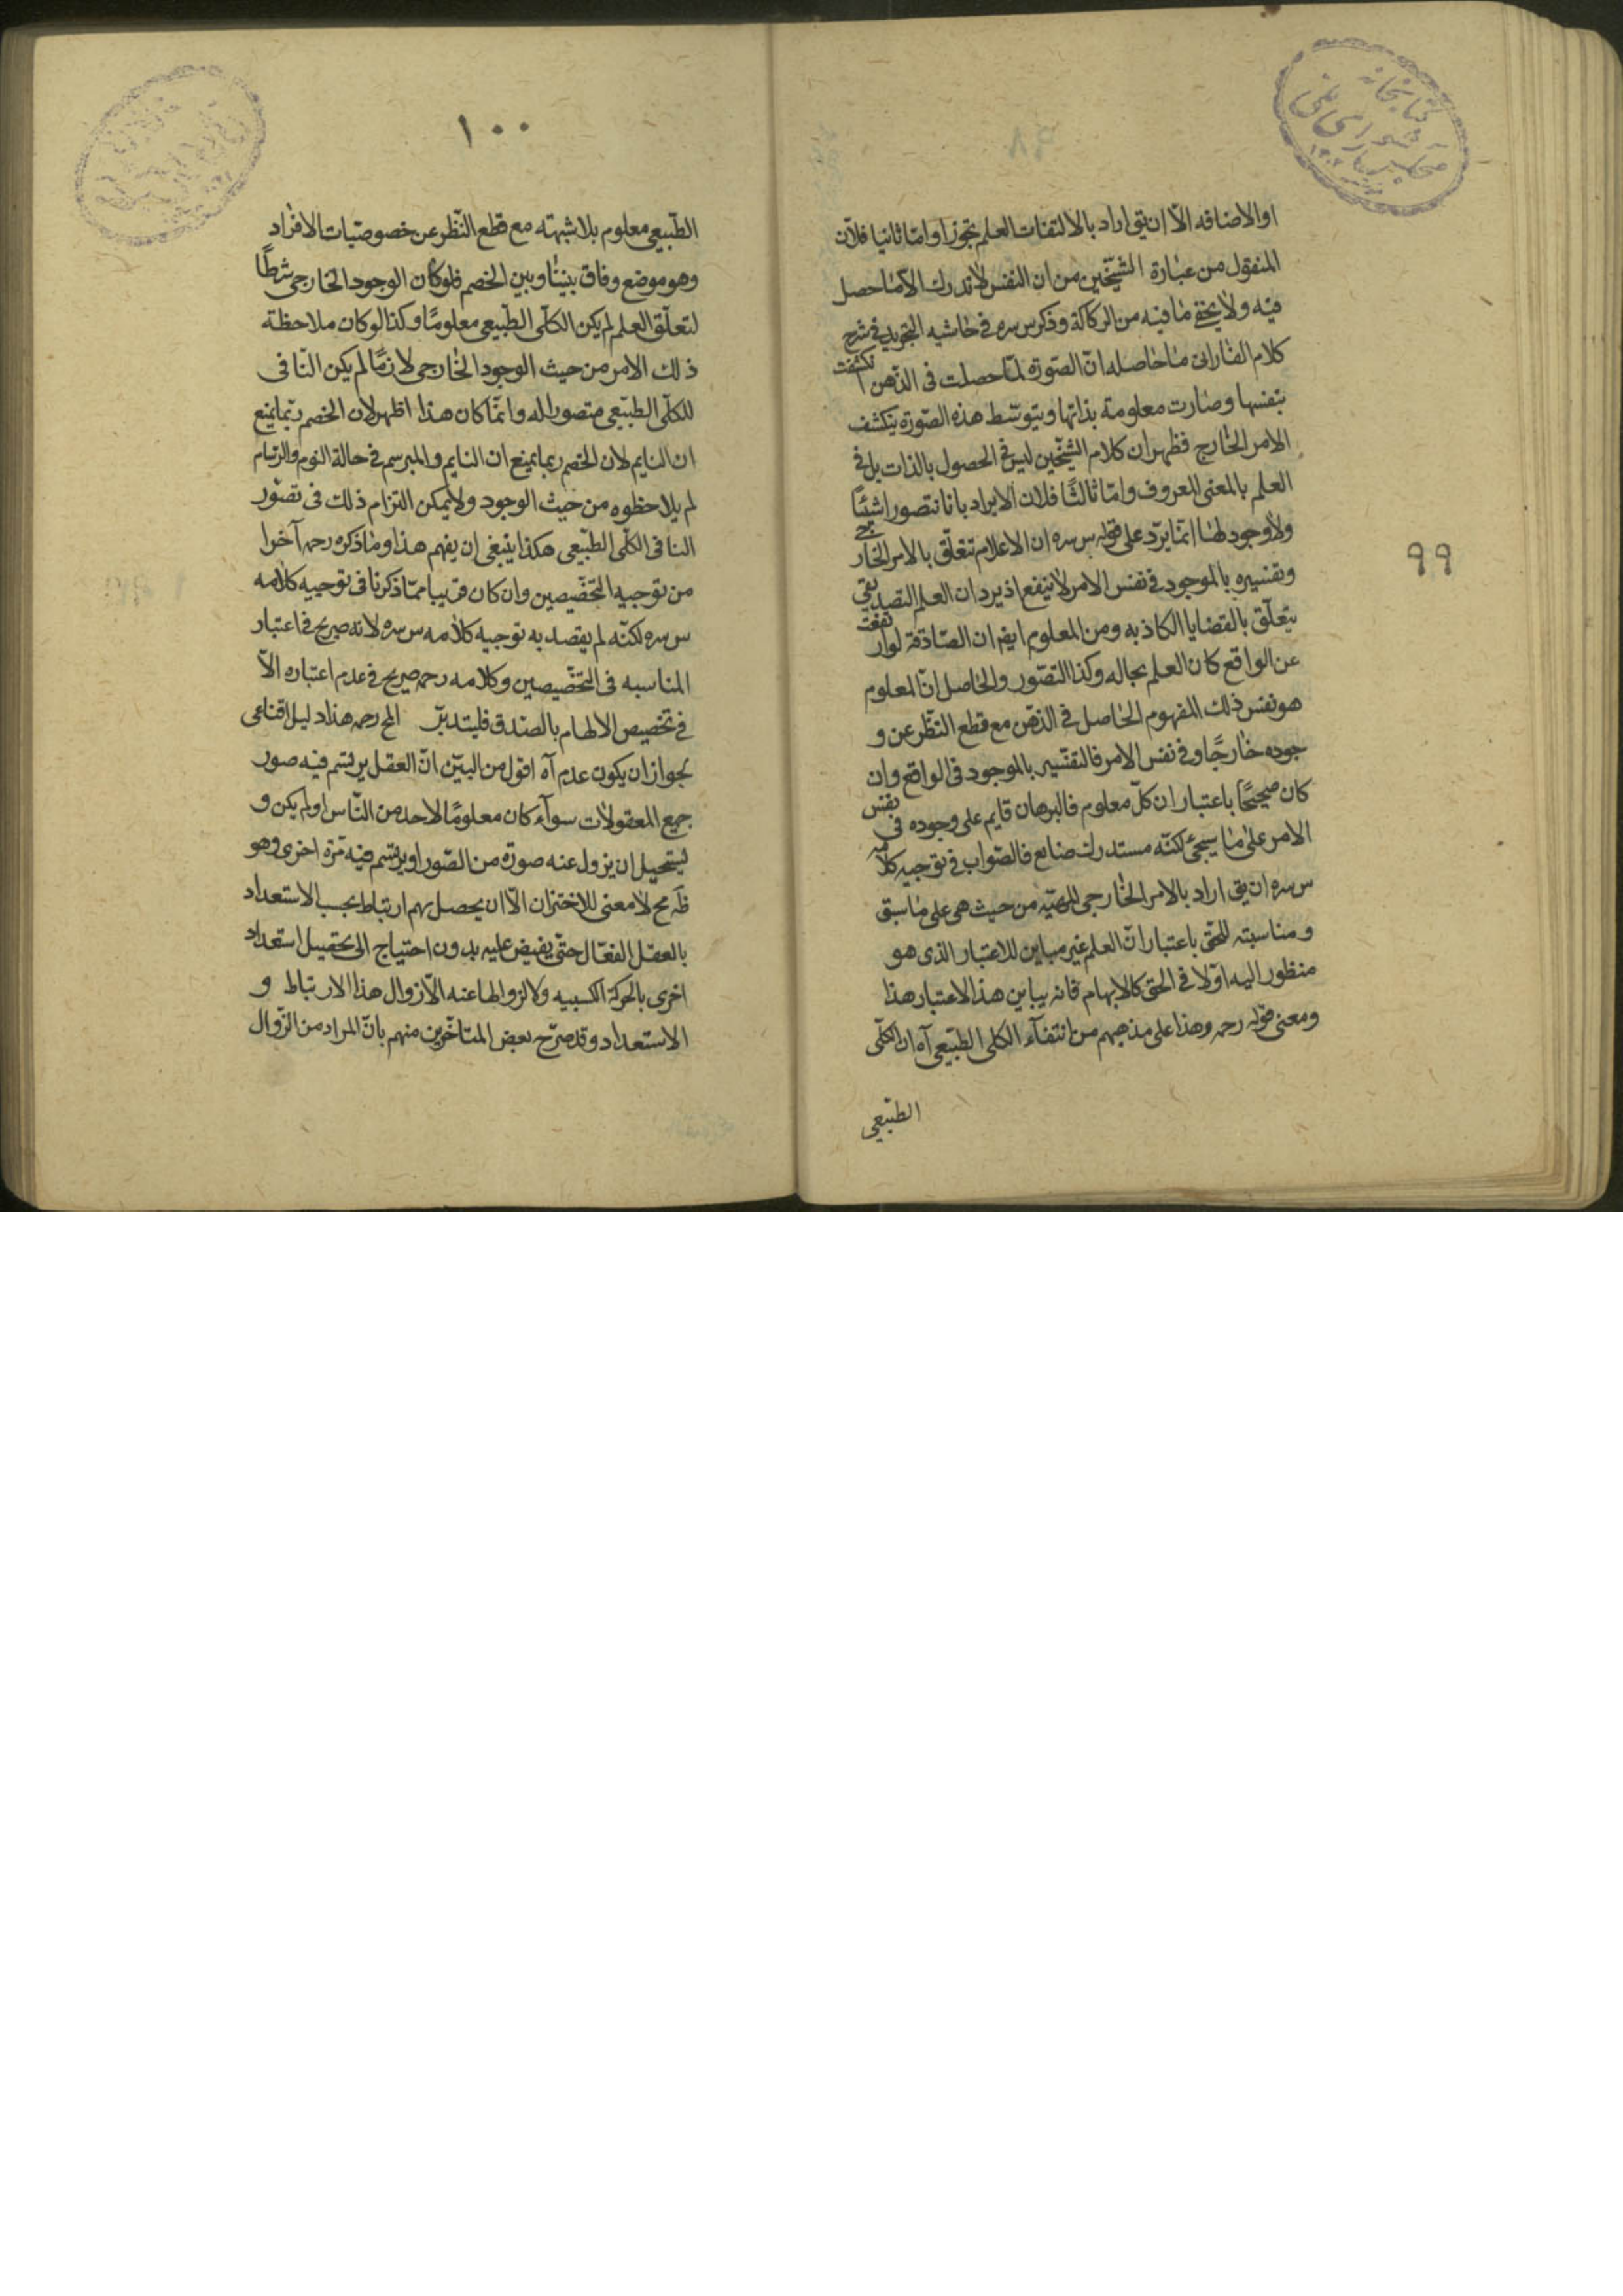 او الاضافه الّا ان يق اراد بالالتفات العلم تجوزا و امّا ثانيا فلانّ
المنقول من عبارة الشيخين من ان النفس لا تدرك الّا ما حصل
فيه ولا يخفى ما فيه من الركاكة و ذكر س سره فى حاشيه التجريد فى شرح
كلام الفارابى ما حاصله انّ الصّورة لمّا حصلت فى الذّهن انكشفت
بنفسها و صارت معلومة بذاتها و بتوسّط هذه الصّورة ينكشف
الامر الخارج فظهر ان كلام الشيخين ليس فى الحصول بالذات بل فى
العلم بالمعنى المعروف و امّا ثالثًا فلان الايراد بانا نتصور اشئًا
ولا وجود لها انما يرّد على قوله س سره ان الاعلام تتعلّق بالامر الخارجى
و تفسيره بالموجود فى نفس الامر لا ينفع اذ يرد ان العلم التصديقى
يتعلّق بالقضايا الكاذبه و من المعلوم ايضا ان الصّادقة لو ارتفعت
عن الواقع كان العلم بحاله و كذا التصّور و الحاصل انّ المعلوم
هو نفس ذلك المفهوم الحاصل فى الذهن مع قطع النّظر عن و
جوده خارجًا و فى نفس الامر فالتفسير بالموجود فى الواقع و ان
كان صحيحًا باعتبار ان كلّ معلوم فالبرهان قايم على وجوده فى نفس
الامر على ما سيجئ لكنّه مستدرك ضايع فالصّواب فى توجيه كلامه
س سره ان يق اراد بالامر الخارجى الماهيّه من حيث هى على ما سبق
و مناسبته للحقّ باعتبار انّ العلم غير مباين للاعتبار الذى هو
منظور اليه اوّلا فى الحق كالابهام فانه يباين هذا الاعتبار هذا
و معنى قوله رحمه و هذا على مذهبهم من انتفآء الكلى الطبّيعى آه ان الكلّى
الطبّيعى
٩٩
١٠٠
الطبّيعى معلوم بلا شبهته مع قطع النّظر عن خصوصيّات الافراد
و هو موضع وفاق بيننا و بين الخصم فلو كان الوجود الخارجى شرطًا
لتعلّق العلم لم يكن الكلّى الطبّيعى معلومًا و كذا لو كان ملاحظة
ذلك الامر من حيث الوجود الخارجى لازمًا لم يكن النّافى
للكلّى الطبّيعى متصورا له و انمّا كان هذا اظهر لان الخصم ربّما يمنع
ان النايم لان الخصم ربما يمنع ان النايم و المبرسم فى حالة النوم و البرسام
لم يلاحظوه من حيث الوجود و لا يمكن التزام ذلك فى تصوّر
النافى الكلّى الطبّيعى هكذا ينبغى ان يفهم هذا و ما ذكره رحمه آخرا
من توجيه التخصّيصين و ان كان قريبا ممّا ذكرنا فى توجيه كلامه
س سره لكنّه لم يقصد به توجيه كلامه س سره لانه صريح فى اعتبار
المناسبه فى التخصّيصين و كلامه رحمه صريح فى عدم اعتباره الّا
فى تخصيص الالهام بالصندق فليتدبّر المح رحمه هذا دليل اقناعى
لجواز ان يكون عدم آه اقول من البيّن انّ العقل يرتسم فيه صور
جميع المعقولات سوآء كان معلومًا لاحد من النّاس او لم يكن و
يستحيل ان يزول عنه صورة من الصّور او يرتسم فيه مرّة اخرى و هو
ظ مح لا معنى للاختزان الّا ان يحصل بهم ارتباط بحسب الاستعداد
بالعقل الفعّال حتّى يفيض عليه بدون احتياج الى تحصيل استعداد
اخرى بالحركة الكسبيه و لا لزوالها عنه الّا زوال هذا الارتباط و
الاستعداد و قد صرّح بعض المتاخّرين منهم بانّ المراد من الزّوال